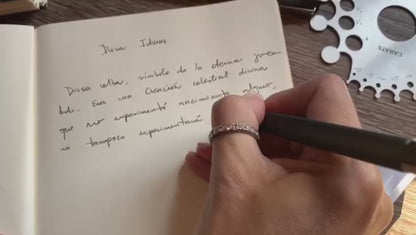 Diosa Idunn
Diosa celta, símbolo de la eterna juven-
tud. Era una creación celestial divina
que no experimentó nacimiento alguno,
no tampoco experimentará
CARATS